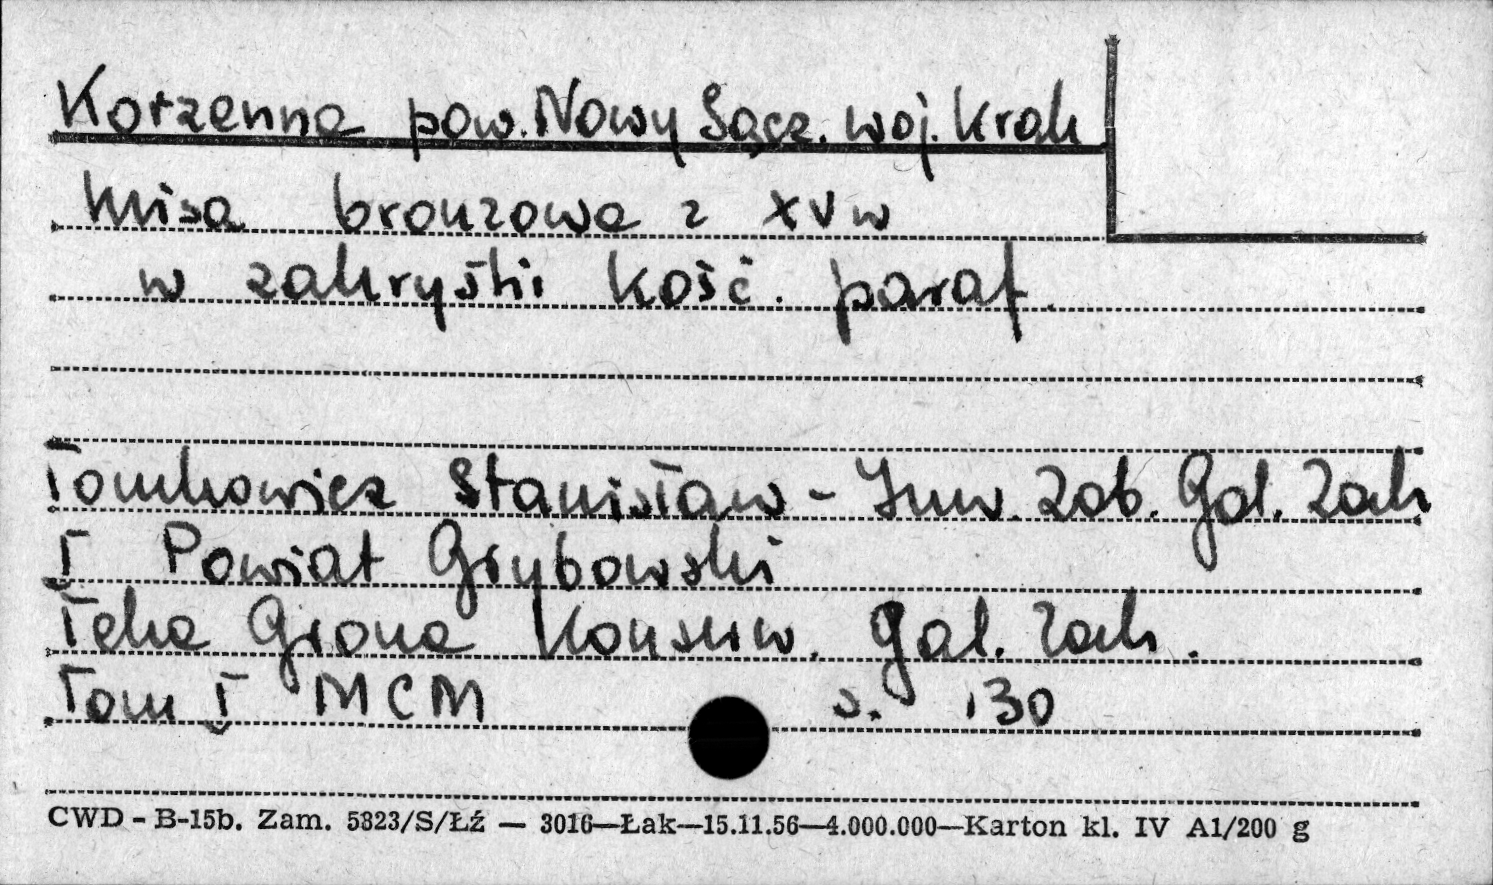 Korzenna pow. Nowy Sącz. woj. Krak
Misa bronzowa z XV w
w zakrystii kość. paraf.
Tomkowicz Stanisław - Inw. Zab. Gal. Zach
I Powiat Grybowski
Teka Grona Konserw. Gal. Zach.
Tom I MCM s. 130
CWD - B-15b. Zam. 5823/S/Łź — 3016—Łak—15.11.56—4.000.000—Karton kl. IV A1/200 g